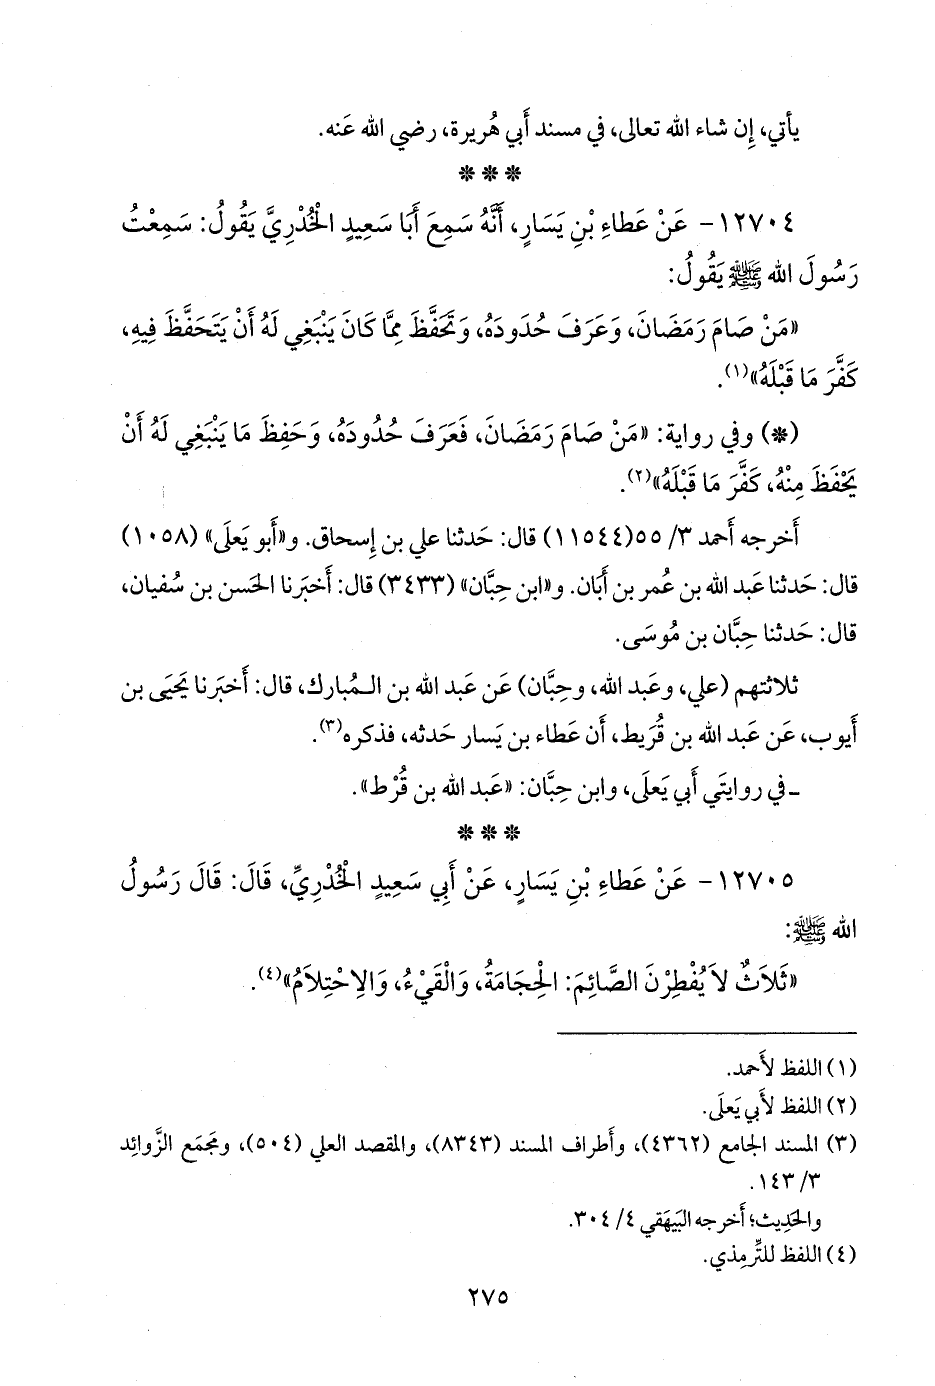 يأتي، إِن شاء الله تعالى، في مسند أَبي هُريرة، رضي الله عَنه.
* * *
١٢٧٠٤- عَنْ عَطَاءِ بْنِ يَسَارٍ، أَنَّهُ سَمِعَ أَبَا سَعِيدٍ الْخُدْرِيَّ يَقُولُ: سَمِعْتُ
رَسُولَ الله ﷺ يَقُولُ:
«مَنْ صَامَ رَمَضَانَ، وَعَرَفَ حُدُودَهُ، وَتَحَفَّظَ مِمَّا كَانَ يَنْبَغِي لَهُ أَنْ يَتَحَفَّظَ فِيهِ،
كَفَّرَ مَا قَبْلَهُ»(١).
(*) وفي رواية: «مَنْ صَامَ رَمَضَانَ، فَعَرَفَ حُدُودَهُ، وَحَفِظَ مَا يَنْبَغِي لَهُ أَنْ
يَحْفَظَ مِنْهُ، كَفَّرَ مَا قَبْلَهُ»(٢).
أَخرجه أَحمد ٣/ ٥٥(١١٥٤٤) قال: حَدثنا علي بن إِسحاق. و«أَبو يَعلَى» (١٠٥٨)
قال: حَدثنا عَبد الله بن عُمر بن أَبَان. و«ابن حِبَّان» (٣٤٣٣) قال: أَخبَرنا الحَسن بن سُفيان،
قال: حَدثنا حِبَّان بن مُوسَى.
ثلاثتهم (علي، وعَبد الله، وحِبَّان) عَن عَبد الله بن الـمُبارك، قال: أَخبَرنا يَحيَى بن
أَيوب، عَن عَبد الله بن قُريط، أَن عَطاء بن يَسار حَدثه، فذكره(٣).
ـ في روايتَي أَبي يَعلَى، وابن حِبَّان: «عَبد الله بن قُرْط».
* * *
١٢٧٠٥- عَنْ عَطَاءِ بْنِ يَسَارٍ، عَنْ أَبِي سَعِيدٍ الْخُدْرِيِّ، قَالَ: قَالَ رَسُولُ
الله ﷺ:
«ثَلَاثٌ لَا يُفْطِرْنَ الصَّائِمَ: الْحِجَامَةُ، وَالْقَيْءُ، وَالِاحْتِلَامُ»(٤).
(١) اللفظ لأَحمد.
(٢) اللفظ لأَبي يَعلَى.
(٣) المسند الجامع (٤٣٦٢)، وأَطراف المسند (٨٣٤٣)، والمقصد العلي (٥٠٤)، ومَجمَع الزَّوائد
٣/ ١٤٣.
والحَدِيث؛ أَخرجه البَيهَقي ٤/ ٣٠٤.
(٤) اللفظ للتِّرمِذي.
٢٧٥